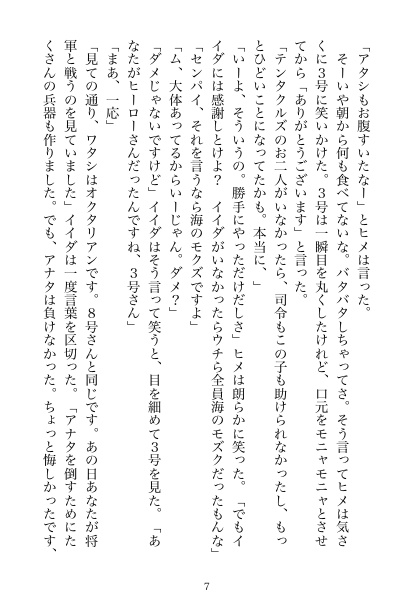 「アタシもお腹すいたなー」とヒメは言った。
　そーいや朝から何も食べてないな。バタバタしちゃってさ。そう言ってヒメは気さ
くに３号に笑いかけた。３号は一瞬目を丸くしたけれど、口元をモニャモニャとさせ
てから「ありがとうございます」と言った。
「テンタクルズのお二人がいなかったら、司令もこの子も助けられなかったし、もっ
とひどいことになってたかも。本当に、」
「いーよ、そういうの。勝手にやっただけだしさ」ヒメは朗らかに笑った。「でもイ
イダには感謝しとけよ？　イイダがいなかったらウチら全員海のモズクだったもんな」
「センパイ、それを言うなら海のモクズですよ」
「ム、大体あってるからいーじゃん。ダメ？」
「ダメじゃないですけど」イイダはそう言って笑うと、目を細めて３号を見た。「あ
なたがヒーローさんだったんですね、３号さん」
「まあ、一応」
「見ての通り、ワタシはオクタリアンです。８号さんと同じです。あの日あなたが将
軍と戦うのを見ていました」イイダは一度言葉を区切った。「アナタを倒すためにた
くさんの兵器も作りました。でも、アナタは負けなかった。ちょっと悔しかったです、
7